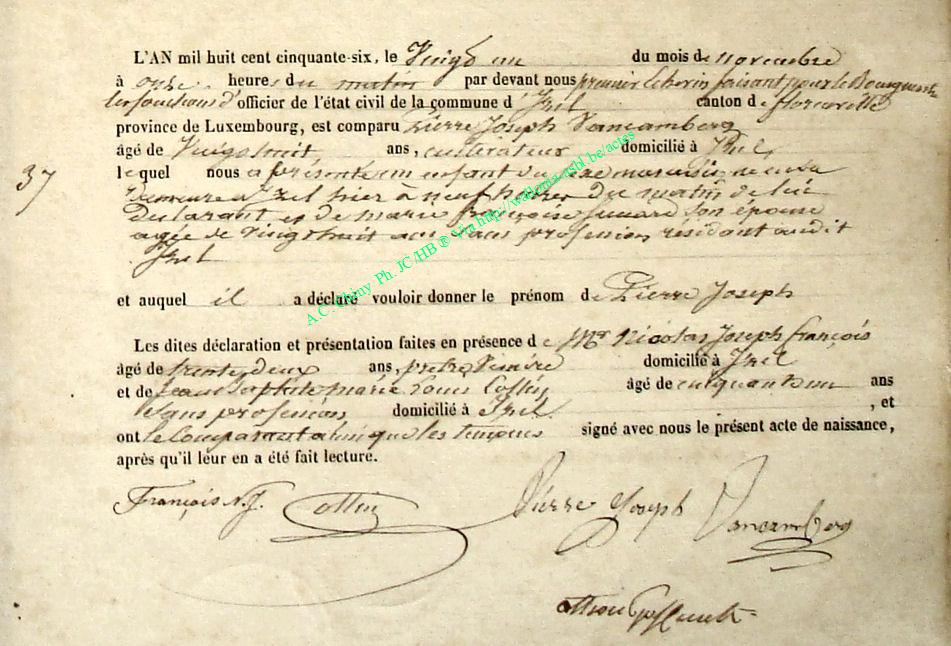 L'AN mil huit cent cinquante-six, le Vingt un du mois de novembre
à onze heures du matin par devant nous premier Echevin faisant pour le Bourgmestre
les fonctions d'officier de l'état civil de la commune d'Izel canton de florenville
province de Luxembourg, est comparu Pierre Joseph Vancamberg
âgé de Vingt huit ans, cultivateur domicilié à Izel,
37
lequel nous a présenté un enfant du sexe masculin né en sa
demeure à Izel hier à neuf heures du matin de lui
declarant et de marie françoise son épouse
agée de vingt huit ans sans profession residant audit
Izel
et auquel il a déclaré vouloir donner le prénom de Pierre Joseph
Les dites déclaration et présentation faites en présence de Mr Nicolas Joseph françois
âgé de trente deux ans, pretre domicilié à Izel
et de Jean Baptiste marie Louis Collin âgé de cinquante un ans
sans profession domicilié à Izel, et
ont le Comparant ainsi que les temoins signé avec nous le présent acte de naissance,
après qu'il leur en a été fait lecture.
François N. J. Collin Pierre Joseph Vancamberg
A.C. Chiny Ph. JC/HB ® Via http://wallonia.asbl.be/actes